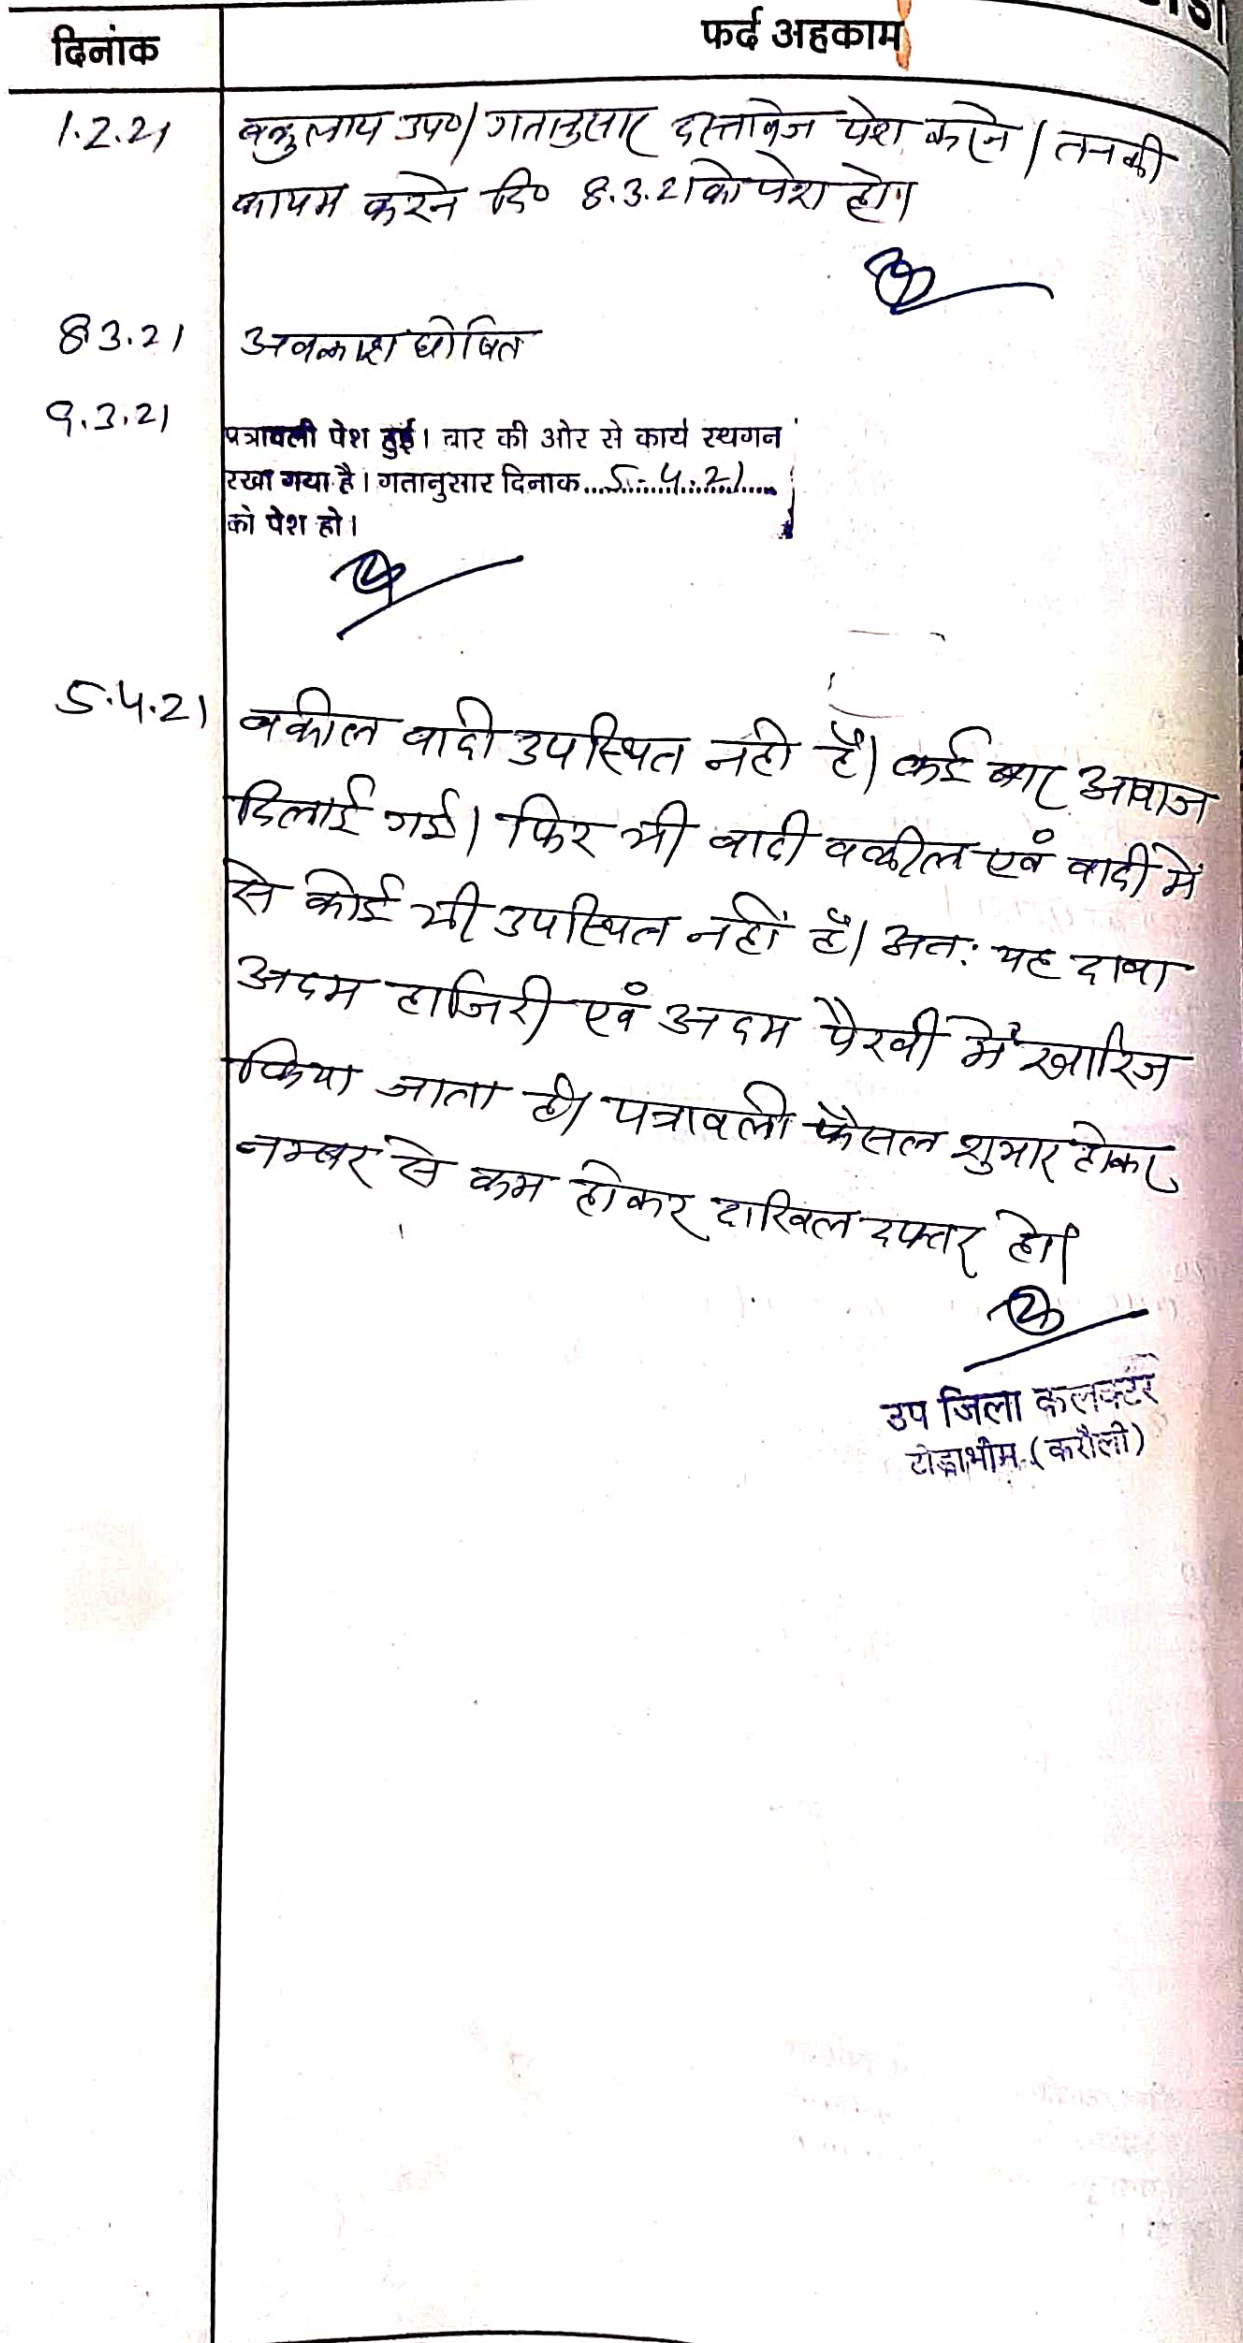 दिनांक
फर्द अहकाम
1.2.21
वकुलाय उप०। गतानुसार दस्तावेज पेश करने / तनकी
कायम करने दि० 8.3.21 को पेश हो।
8.3.21
अवकाश घोषित
9.3.21
पत्रावली पेश हुई। बार की ओर से कार्य स्थगन
रखा गया है। गतानुसार दिनाक...5.4.21...
को पेश हो।
5.4.21
वकील वादी उपस्थित नही है। कई बार आवाज
दिलाई गई। फिर भी वादी वकील एवं वादी में
से कोई भी उपस्थित नहीं है। अत: यह दावा
अदम हाजिरी एवं अदम पैरवी में खारिज
किया जाता है। पत्रावली फैसल शुमार होकर
नम्बर से कम होकर दाखिल दफ्तर हो।
उप जिला कलक्टर
टोडाभीम (करौली)